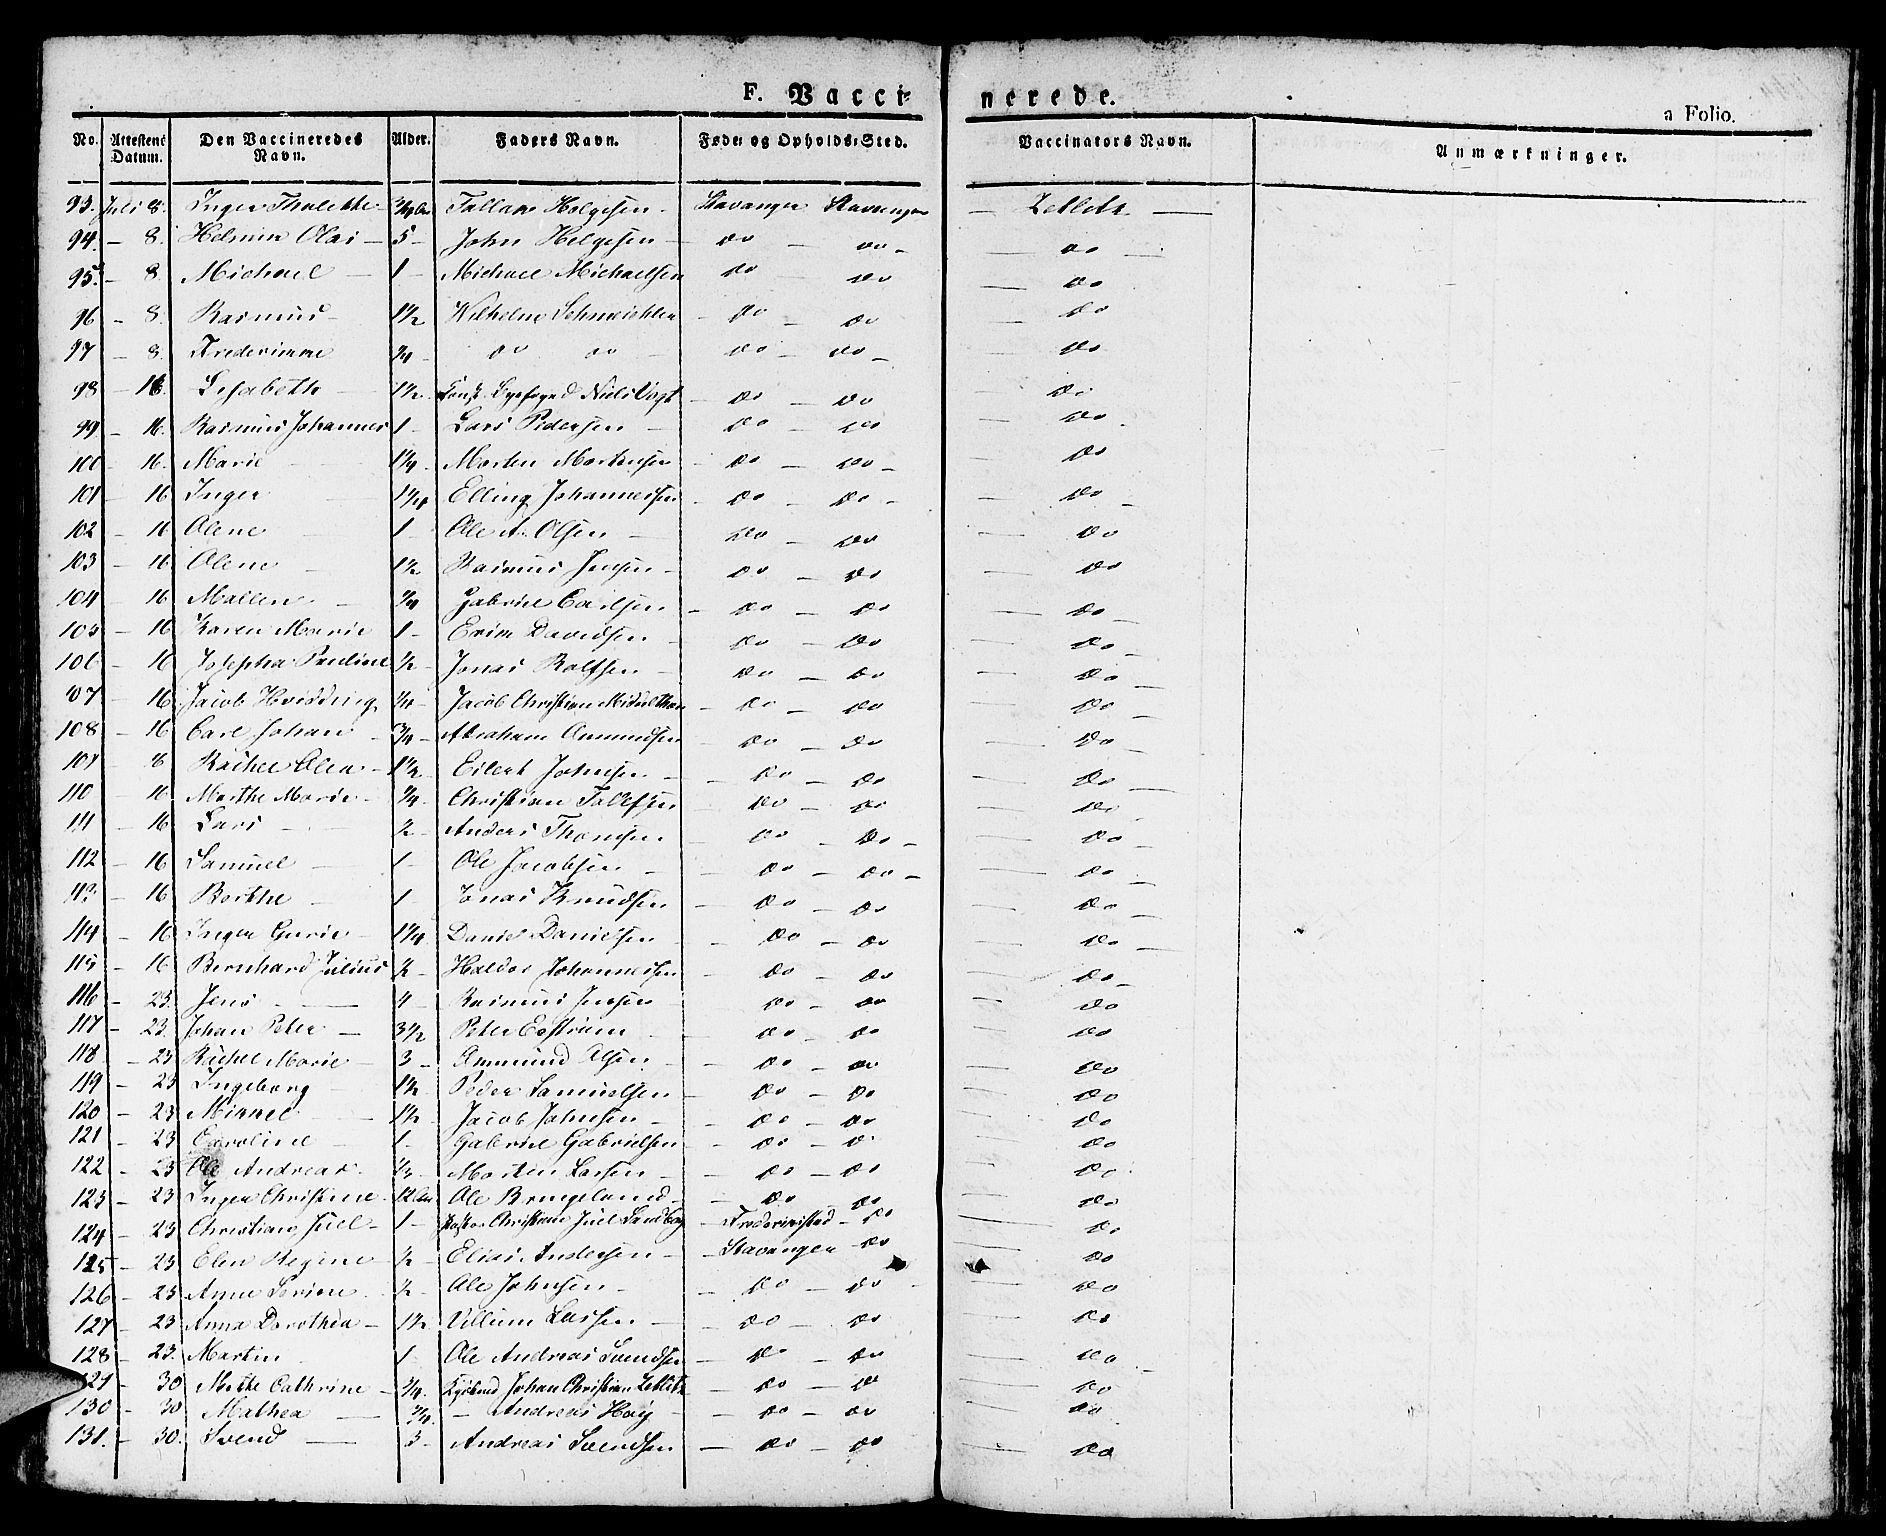 F. Vacci- nerede.
a Folio.
No. Attestens Datum. Den Vaccineredes Navn. Alder. Faders Navn. Føde- og Opholds-Sted. Vaccinators Navn. Anmærkninger.
93. Juli 8. Inger Thalette Tallax Helgesen - Stavanger Stavanger - Zetlitz -
94. - 8. Helmin Olai - 5 - John Helgesen - do - do - - do -
95. - 8. Michael - 1 - Michael Michaelsen do do - do
96 - 8. Rasmus - 1½ Wilhelm - do - do - do
97 - 8. Frederimme ¾ - do do - do - do - - do
98 - 16. Lisabeth - 1½ Const. Byefoged Niels Vogt - do - do do
99 - 16. Rasmus Johannes 1 - Lars Pedersen - do - do - do
100 - 16. Marie 1¼ - Morten Mortensen - do - do - - do
101 - 16 Inger 1¼ Elling Johannessen - do - do - - do -
102 - 16 Olene 1 - Ole A. Olsen - do - do - do
103 - 16 Olene 1½ Rasmus Jensen - do - do - do
104 - 16 Mallen - ¾ Gabriel Carlsen - do - do - do -
105 - 16 Karen Marie 1 - Erik Davidsen - do - do - do -
106 - 16 Josepha Pauline ½ - Jonas Rolfsen - do - do - do -
107 - 16 Jacob Hvidding ¼ - Jacob Christian Middelthon - do - do - do -
108 - 16 Carl Johan - ¾ - Abraham Ommundsen do - do - do -
109 - 8 Rachel Elen - 1½ Eilert Johnsen - do - do - do -
110 - 16 Marthe Marie - ¼ - Christian Tollefsen do - do - do
111 - 16 Lars - ½ - Anders Thomsen do - do - - do -
112 - 16 Samuel - 1 - Ole Jacobsen - - do - do - - do -
113 - 16 Berthe - 1 - Jonas Knudsen - do - do - do -
114 - 16 Inger Gurie - 1¼ Daniel Danielsen - - do - do - do -
115 - 16 Bernhard Julius ½ - Haldor Johannessen - do - do - do -
116 - 23. Jens - 4 - Rasmus Jensen do - do - do
117 - 23. Johan Peter - 3½ Peter do - do - do
118 - 23 Marie - 3 - Ommund Olsen - - do - do - do
119 - 23 Ingeborg - 1½ Peder Samuelsen - do - do - do
120 - 23 - 1½ Jacob Johnsen - - do - do - do
121 - 23 Caroline - 1 - Gabriel Gabrielsen - do - do - do
122 - 23 Ole Andreas - Morten Larsen - - do - do - do
123 - 23 Inger Christine - Ole Bringeland - - do do - do
124 - 23 Christian Juel - 1 - Christian Juel Sandberg - Frederikstad - do - do
125 - 23 Elen Regine ½ - Elias Andersen - - Stavanger - do - do
126 - 23 Anne Serine - ½ - Ole Johnsen - - do - do - - do
127 - 23 Anna Dorothea - 1½ Villum Larsen - - do - do - do
128 - 23. Martin 1 - Ole Andreas Svendsen - do - do - do -
129 - 30 Mette Cathrine - ¾ - Kjøbmd Johan Christian Zetlitz - do - do - do
130 - 30 Mathea - ¾ - Andreas Høg - - do - do - do
131. - 30. Svend - 3 - Andreas Svendsen - do - do - do